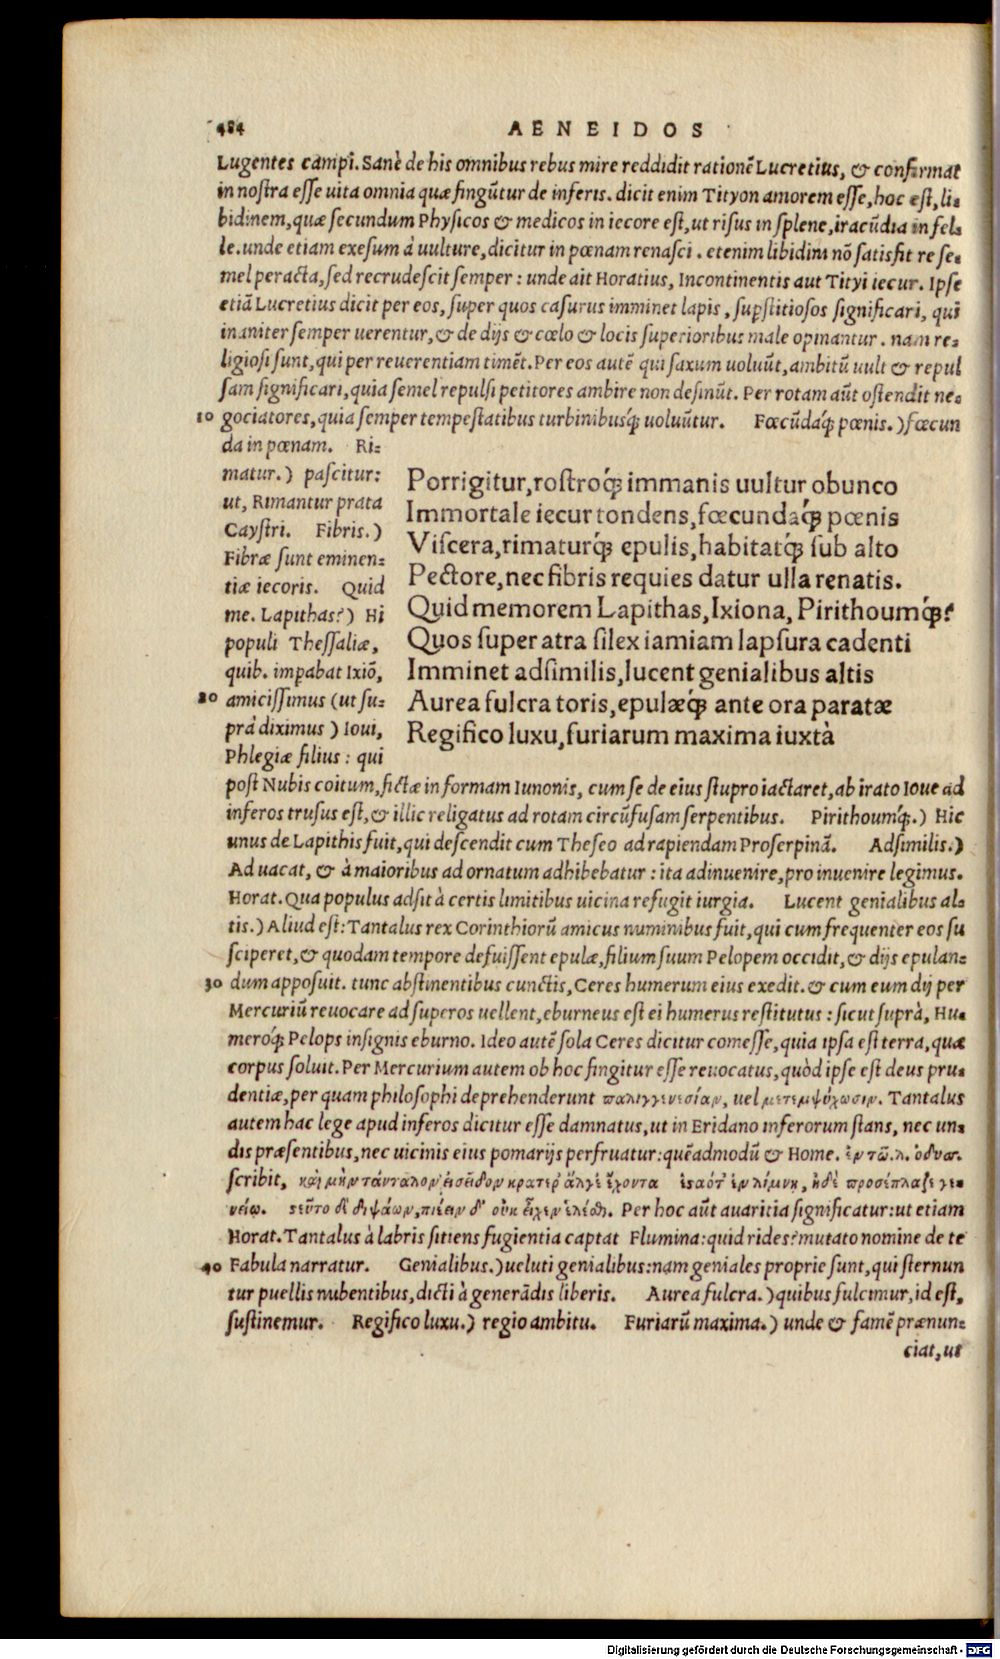 484 AENEIDOS
Lugentes campi. Sanè de his omnibus rebus mire reddidit rationẽ Lucretius, & confirmat
in nostra esse uita omnia quæ fingũtur de inferis. dicit enim Tityon amorem esse, hoc est, li-
bidinem, quæ secundum Physicos & medicos in iecore est, ut risus in splene, iracũdia in fel-
le. unde etiam exesum à uulture, dicitur in pœnam renasci. etenim libidini nõ satisfit re se-
mel peracta, sed recrudescit semper: unde ait Horatius, Incontinentis aut Tityi iecur. Ipse
etiã Lucretius dicit per eos, super quos casurus imminet lapis, supstitiosos significari, qui
inaniter semper uerentur, & de dijs & cœlo & locis superioribus male opinantur. nam re-
ligiosi sunt, qui per reuerentiam timẽt. Per eos autẽ qui saxum uoluũt, ambitũ uult & repul
sam significari, quia semel repulsi petitores ambire non desinũt. Per rotam aũt ostendit ne-
10 gociatores, quia semper tempestatibus turbinibusq́; uoluũtur. Fœcũdaq́; pœnis.) fœcun
da in pœnam. Ri-
matur.) pascitur:
ut, Rimantur prata
Caystri. Fibris.)
Fibræ sunt eminen-
tiæ iecoris. Quid
me. Lapithas?) Hi
populi Thessaliæ,
quib. impabat Ixiõ,
20 amicissimus (ut su-
prà diximus) Ioui,
Phlegiæ filius: qui
Porrigitur, rostroq́; immanis uultur obunco
Immortale iecur tondens, fœcundaq́; pœnis
Viscera, rimaturq́; epulis, habitatq́; sub alto
Pectore, nec fibris requies datur ulla renatis.
Quid memorem Lapithas, Ixiona, Pirithoumq́;?
Quos super atra silex iamiam lapsura cadenti
Imminet adsimilis, lucent genialibus altis
Aurea fulcra toris, epulæq́; ante ora paratæ
Regifico luxu, furiarum maxima iuxtà
post Nubis coitum, fictæ in formam Iunonis, cum se de eius stupro iactaret, ab irato Ioue ad
inferos trusus est, & illic religatus ad rotam circũfusam serpentibus. Pirithoumq́;.) Hic
unus de Lapithis fuit, qui descendit cum Theseo ad rapiendam Proserpinã. Adsimilis.)
Ad uacat, & à maioribus ad ornatum adhibebatur: ita adinuenire, pro inuenire legimus.
Horat. Qua populus adsità certis limitibus uicina refugit iurgia. Lucent genialibus al-
tis.) Aliud est: Tantalus rex Corinthiorũ amicus numinibus fuit, qui cum frequenter eos su
sciperet, & quodam tempore defuissent epulæ, filium suum Pelopem occidit, & dijs epulan-
30 dum apposuit. tunc abstinentibus cunctis, Ceres humerum eius exedit. & cum eum dij per
Mercuriũ reuocare ad superos uellent, eburneus est ei humerus restitutus: sicut suprà, Hu-
meroq́; Pelops insignis eburno. Ideo autẽ sola Ceres dicitur comesse, quia ipsa est terra, quæ
corpus soluit. Per Mercurium autem ob hoc fingitur esse reuocatus, quòd ipse est deus pru-
dentiæ, per quam philosophi deprehenderunt παλιγγενεσίαν, uel μετεμψύχωσιν. Tantalus
autem hac lege apud inferos dicitur esse damnatus, ut in Eridano inferorum stans, nec un-
dis præsentibus, nec uicinis eius pomarijs perfruatur: quẽadmodũ & Home. ἐν τῶ.λ. ὀδυσ.
scribit, καὶ μὴν τάνταλον εἰσεῖδον κρατέρ' ἄλγε' ἔχοντα ἑσαότ' ἐν λίμνη, ἡδὲ προσέπλαξε γε-
νείῳ. σεῦτο δὲ διψάων, πιέειν δ' οὐκ εἶχεν ἑλέσθ. Per hoc aũt auaritia significatur: ut etiam
Horat. Tantalus à labris sitiens fugientia captat Flumina: quid rides? mutato nomine de te
40 Fabula narratur. Genialibus.) ueluti genialibus: nam geniales proprie sunt, qui sternun
tur puellis nubentibus, dicti à generãdis liberis. Aurea fulcra.) quibus fulcimur, id est,
sustinemur. Regifico luxu.) regio ambitu. Furiarũ maxima.) unde & famẽ prænun-
ciat, ut
Digitalisierung gefördert durch die Deutsche Forschungsgemeinschaft - DFG